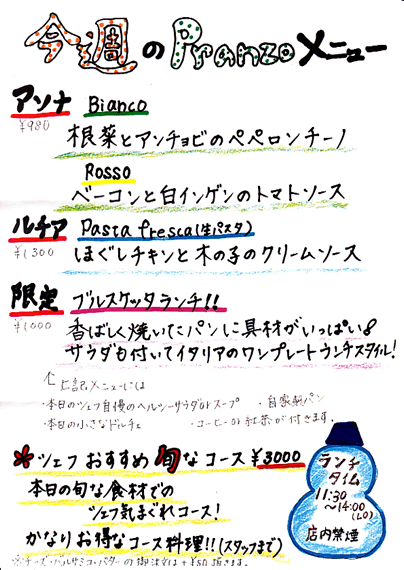 今週のPranzoメニュー
アソナ Bianco
¥980
根菜とアンチョビのペペロンチーノ
Rosso
ベーコンと白インゲンのトマトソース
ルチア Pasta fresca(生パスタ)
¥1300
ほぐしチキンと木の子のクリームソース
限定 ブルスケッタランチ!!
¥1000
香ばしく焼いたパンに具材がいっぱい♪
サラダも付いてイタリアのワンプレートランチスタイル!
上記メニューには
・本日のシェフ自慢のヘルシーサラダorスープ ・自家製パン
・本日の小さなドルチェ ・コーヒーor紅茶が付きます。
*シェフおすすめ旬なコース¥3000
本日の旬な食材での
シェフ気まぐれコース!
かなりお得なコース料理!!(スタッフまで)
※チーズ・バルサミコ・バターの御注文は+¥50頂きます。
ランチ
タイム
11:30
~14:00
(L.O)
店内禁煙